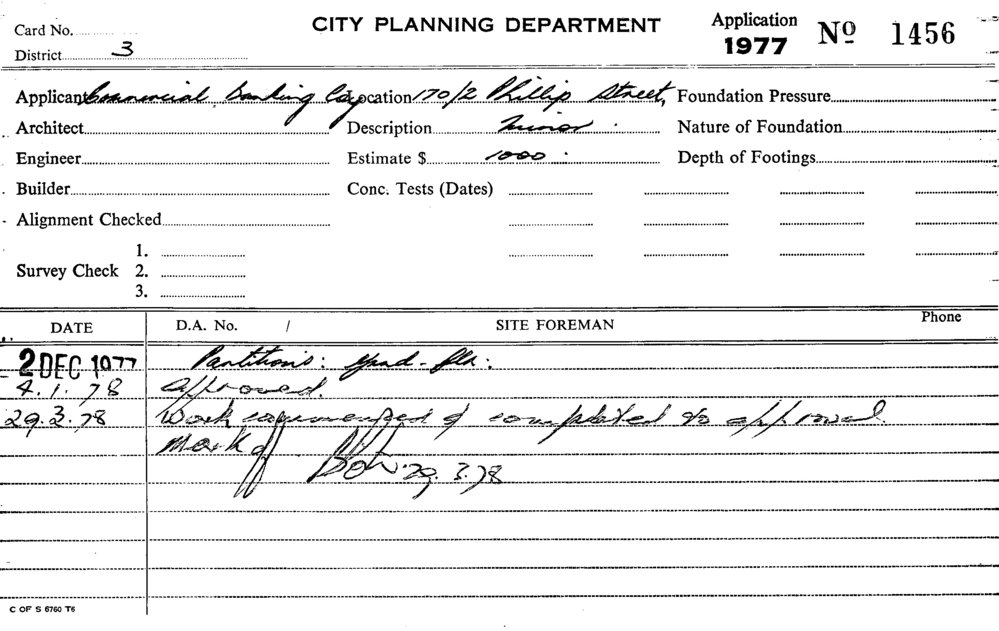 Card No.
District 3
CITY PLANNING DEPARTMENT
Application 1977 Nº 1456
Applicant Commercial Banking Coy Location 170/2 Phillip Street, Foundation Pressure
Architect Description Minor Nature of Foundation
Engineer Estimate $ 1000 Depth of Footings
Builder Conc. Tests (Dates)
Alignment Checked
Survey Check 1. 2. 3.
DATE D.A. No. / SITE FOREMAN Phone
2 DEC 1977 Partitions: Grnd. Flr:
4.1.78 Approved.
29.3.78 Work commenced & completed to approval
Mark off 29.3.78
C OF S 6760 T6